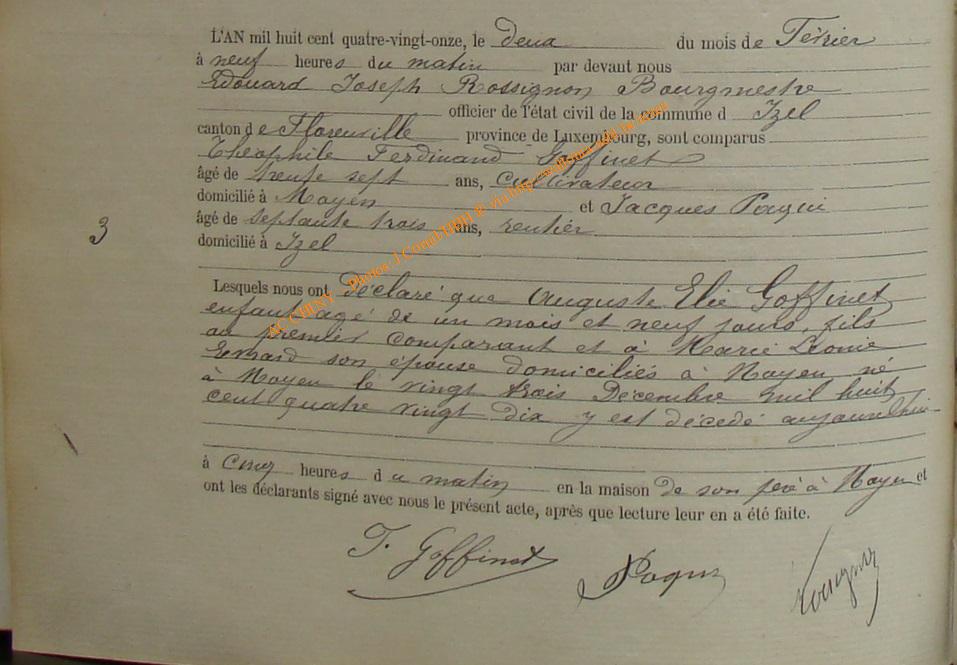 L'AN mil huit cent quatre-vingt-onze, le deux du mois de Février
à neuf heures du matin par devant nous
Edouard Joseph Rossignon Bourgmestre
officier de l'état civil de la commune d Izel
canton de Florenville province de Luxembourg, sont comparus
Théophile Ferdinand Goffinet
âgé de trente sept ans, cultivateur
domicilié à Moyen et Jacques Paqui
âgé de septante trois ans, rentier
domicilié à Izel
3
Lesquels nous ont déclaré que Auguste Elie Goffinet
enfant agé de un mois et neuf jours, fils
au premier comparant et à Marie Léonie
son épouse domiciliés à Moyen né
à Moyen le vingt trois Décembre mil huit
cent quatre vingt dix y est décédé aujourdhui
à cinq heures du matin en la maison de son père à Moyen et
ont les déclarants signé avec nous le présent acte, après que lecture leur en a été faite.
T. Goffinet